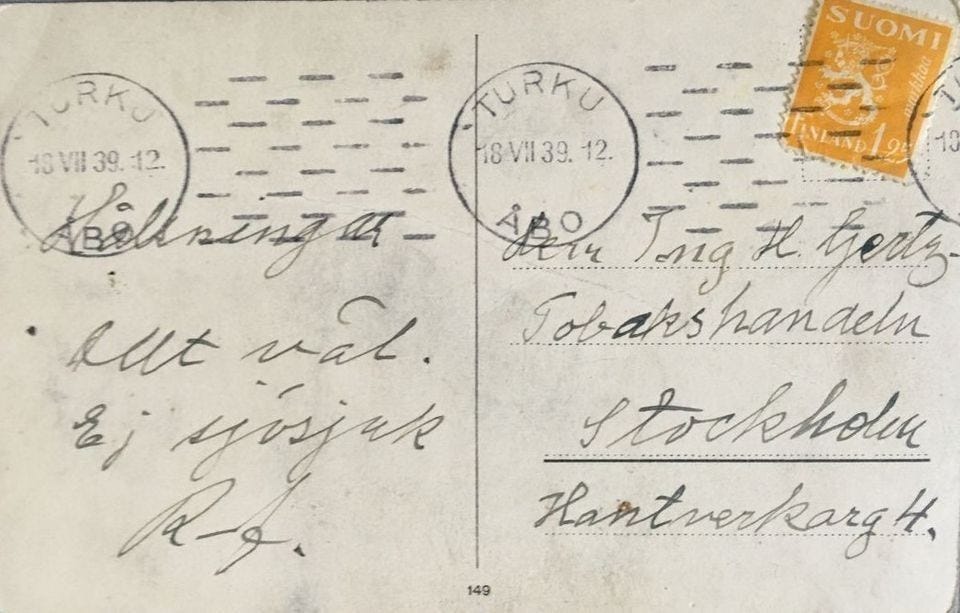 TURKU
18 VII 39. 12.
ÅBO
Hälsningar
Allt väl.
Ej sjösjuk
TURKU
18 VII 39. 12.
ÅBO
SUOMI
markkaa
FINLAND 1.25
Herr Ing H. Gjertz
Tobakshandeln
Stockholm
Hantverkarg 4.
149